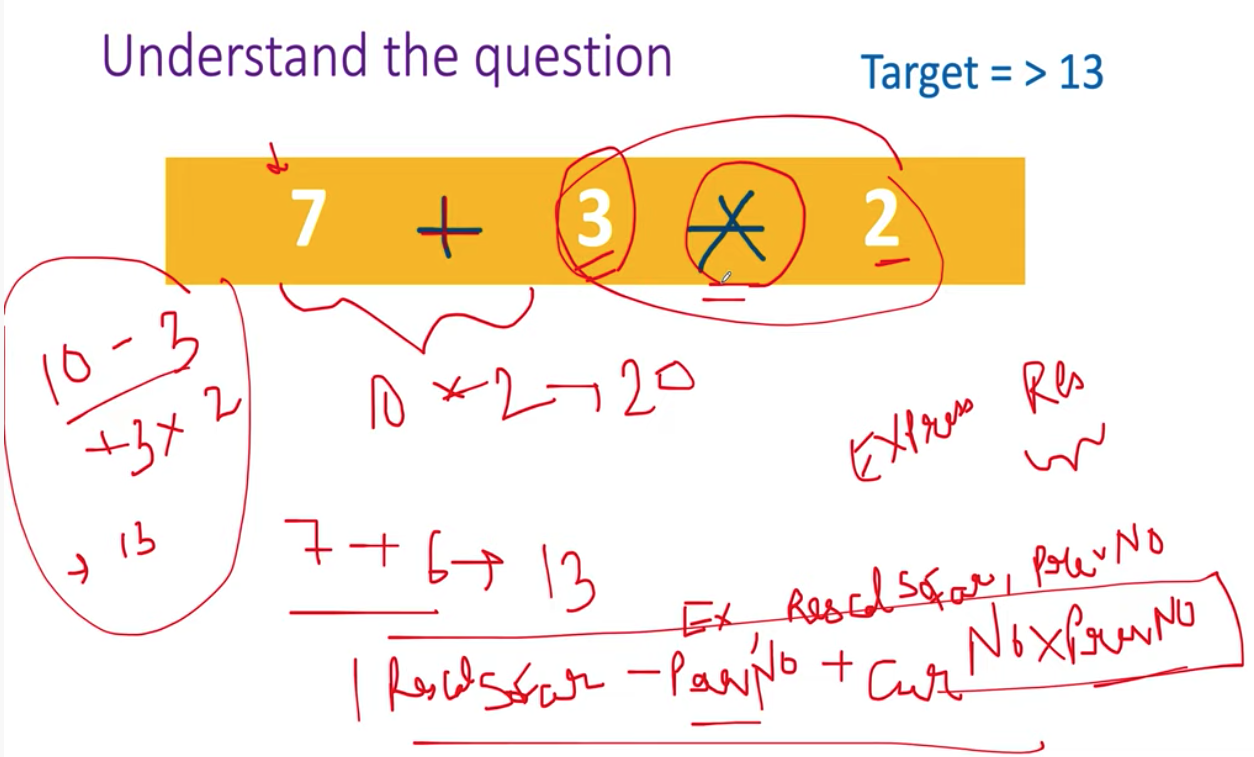 Understand the question
Target = > 13
7 + 3 * 2
10 - 3
+3 x 2
→ 13
10 * 2 → 20
Express Res
7 + 6 → 13
Ex, Rescal Sofar, PrevNo
Rescal Sofar - PrevNo + Cur No x PrevNo